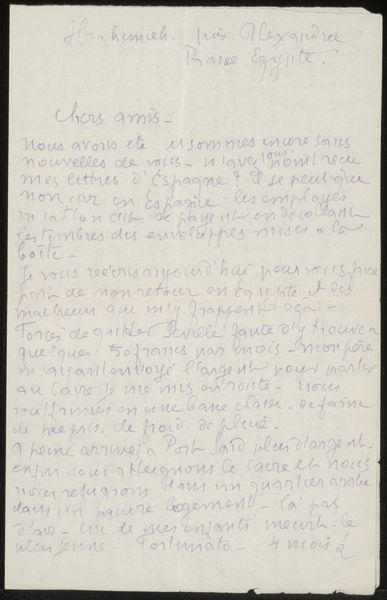 Ibrahimieh. près Alexandrie
Basse Egypte.
Chers amis –
nous avons été et sommes encore sans
nouvelles de vous – n'avez vous point reçu
mes lettres d'Espagne? Il se peut que
non car en Espagne les employés
m'a t'on dit se payent en décollant
les timbres des enveloppes mises a la
boîte –
Je vous reecris aujourd'hui pour vous faire
part de mon retour en Egypte et des
malheurs qui m'y frappent déjà –
Forcés de quitter Séville faute d'y trouver
quelques 50 francs par mois – mon père
m'ayant envoyé l'argent pour partir
au Caire je me mis en route – nous
souffrimes en une basse classe. de faim
de mepris. de froid. de pluie.
a peine arrivés a Port Saïd plus d'argent.
enfin nous atteignons le Caire et nous
nous refugions dans un quartier arabe
dans un pauvre logement – là pas
d'air – un de mes enfants meurt. le
plus jeune – Fortunato – 4 mois ½